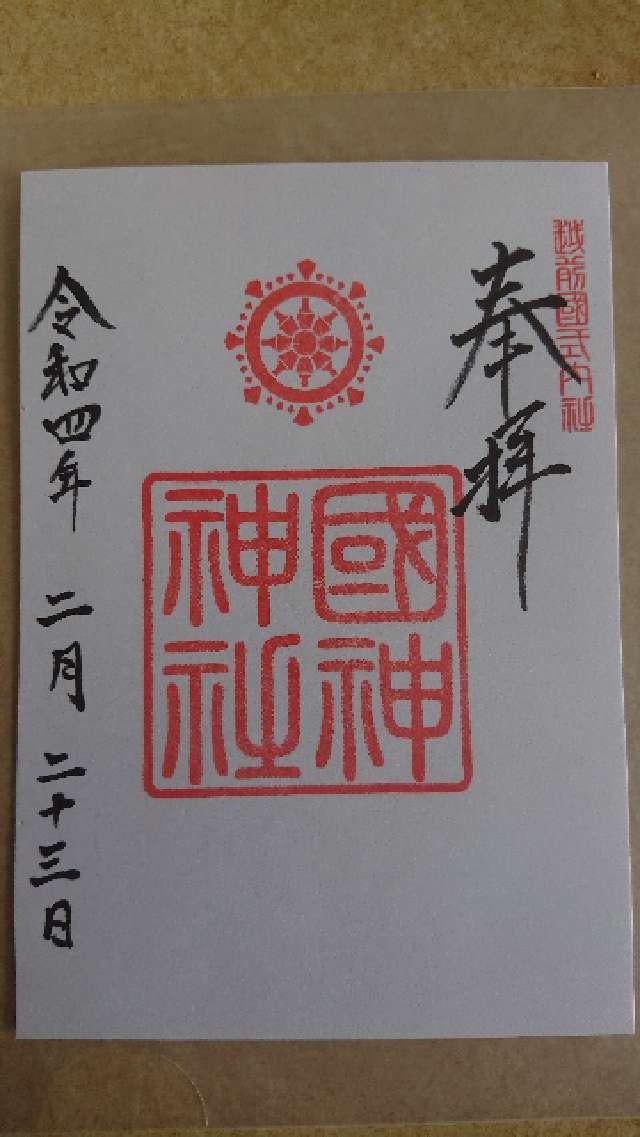 越前國式内社
奉拝
國神
神社
令和四年 二月 二十三日